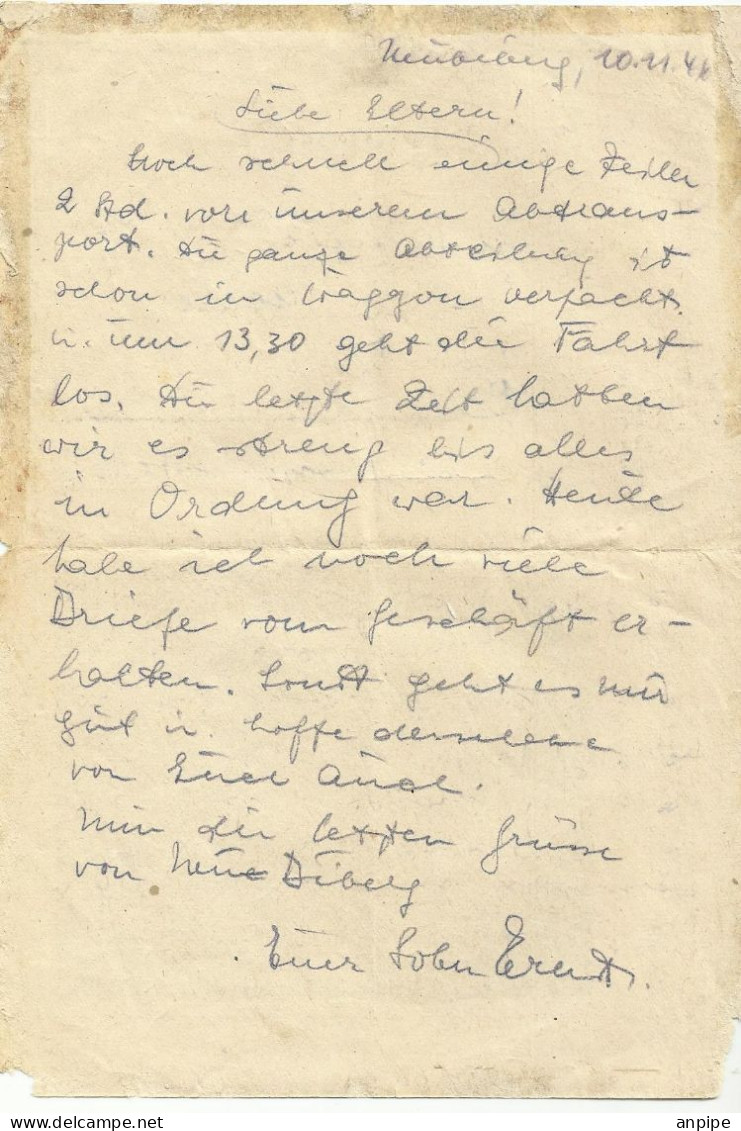 10.11.41
Liebe Eltern!
Noch schnell einige Zeilen
2 Std. vor unserem Abtrans-
port. Die ganze Abteilung ist
schon in Waggon verpackt
u. um 13,30 geht die Fahrt
los. Die letzte Zeit hatten
wir es streng bis alles
in Ordnung war. Heute
habe ich noch viele
Briefe vom Geschäft er-
halten. Sonst geht es mir
gut u. hoffe dasselbe
von Euch auch.
Nun die letzten Grüsse
von
Euer Sohn Ernst.
anpipe